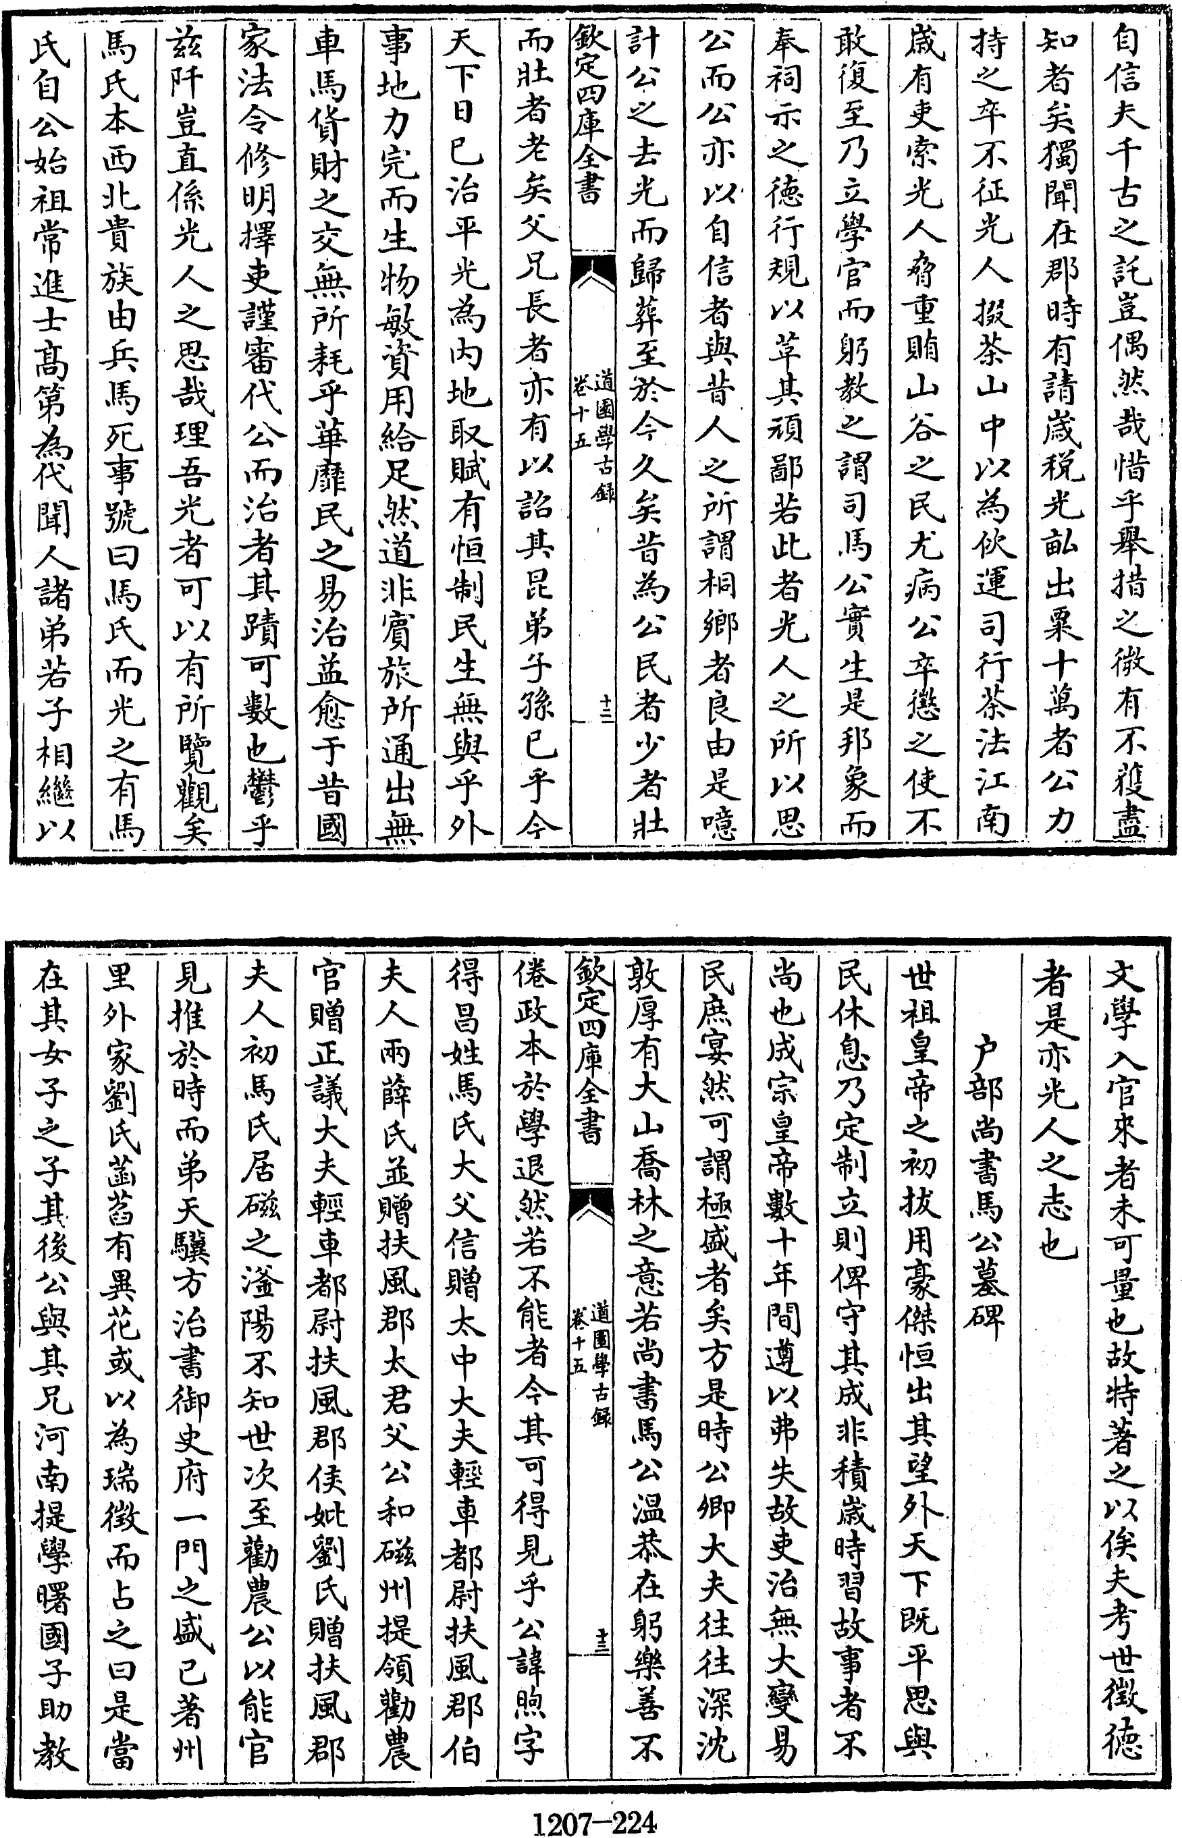 自信夫千古之託豈偶然哉惜乎舉措之微有不獲盡
知者矣獨聞在郡時有請歳税光畆出粟十萬者公力
持之卒不征光人掇茶山中以為飲運司行茶法江南
歳有吏索光人脅重賄山谷之民尤病公卒懲之使不
敢復至乃立學官而躬教之謂司馬公實生是邦象而
奉祠示之徳行規以革其頑鄙若此者光人之所以思
公而公亦以自信者與昔人之所謂桐鄉者良由是噫
計公之去光而歸葬至於今久矣昔為公民者少者壯
欽定四庫全書
道園學古録
卷十五
十二
而壯者老矣父兄長者亦有以詔其昆弟子孫已乎今
天下日已治平光為内地取賦有恒制民生無與乎外
事地力完而生物敏資用給足然道非賓旅所通出無
車馬貨財之交無所耗乎華靡民之易治益愈于昔國
家法令修明擇吏謹審代公而治者其蹟可數也鬱乎
兹阡豈直係光人之思哉理吾光者可以有所覽觀矣
馬氏本西北貴族由兵馬死事號曰馬氏而光之有馬
氏自公始祖常進士高第為代聞人諸弟若子相繼以
文學入官來者未可量也故特著之以俟夫考世徴徳
者是亦光人之志也
户部尚書馬公墓碑
世祖皇帝之初拔用豪傑恒出其望外天下既平思與
民休息乃定制立則俾守其成非積歳時習故事者不
尚也成宗皇帝數十年間遵以弗失故吏治無大變易
民庶宴然可謂極盛者矣方是時公卿大夫往往深沈
敦厚有大山喬林之意若尚書馬公溫恭在躬樂善不
欽定四庫全書
道園學古録
卷十五
十三
倦政本於學退然若不能者今其可得見乎公諱煦字
得昌姓馬氏大父信贈太中大夫輕車都尉扶風郡伯
夫人兩薛氏並贈扶風郡太君父公和磁州提領勸農
官贈正議大夫輕車都尉扶風郡侯妣劉氏贈扶風郡
夫人初馬氏居磁之滏陽不知世次至勸農公以能官
見推於時而弟天驥方治書御史府一門之盛已著州
里外家劉氏菡萏有異花或以為瑞徴而占之曰是當
在其女子之子其後公與其兄河南提學曙國子助教
1207-224